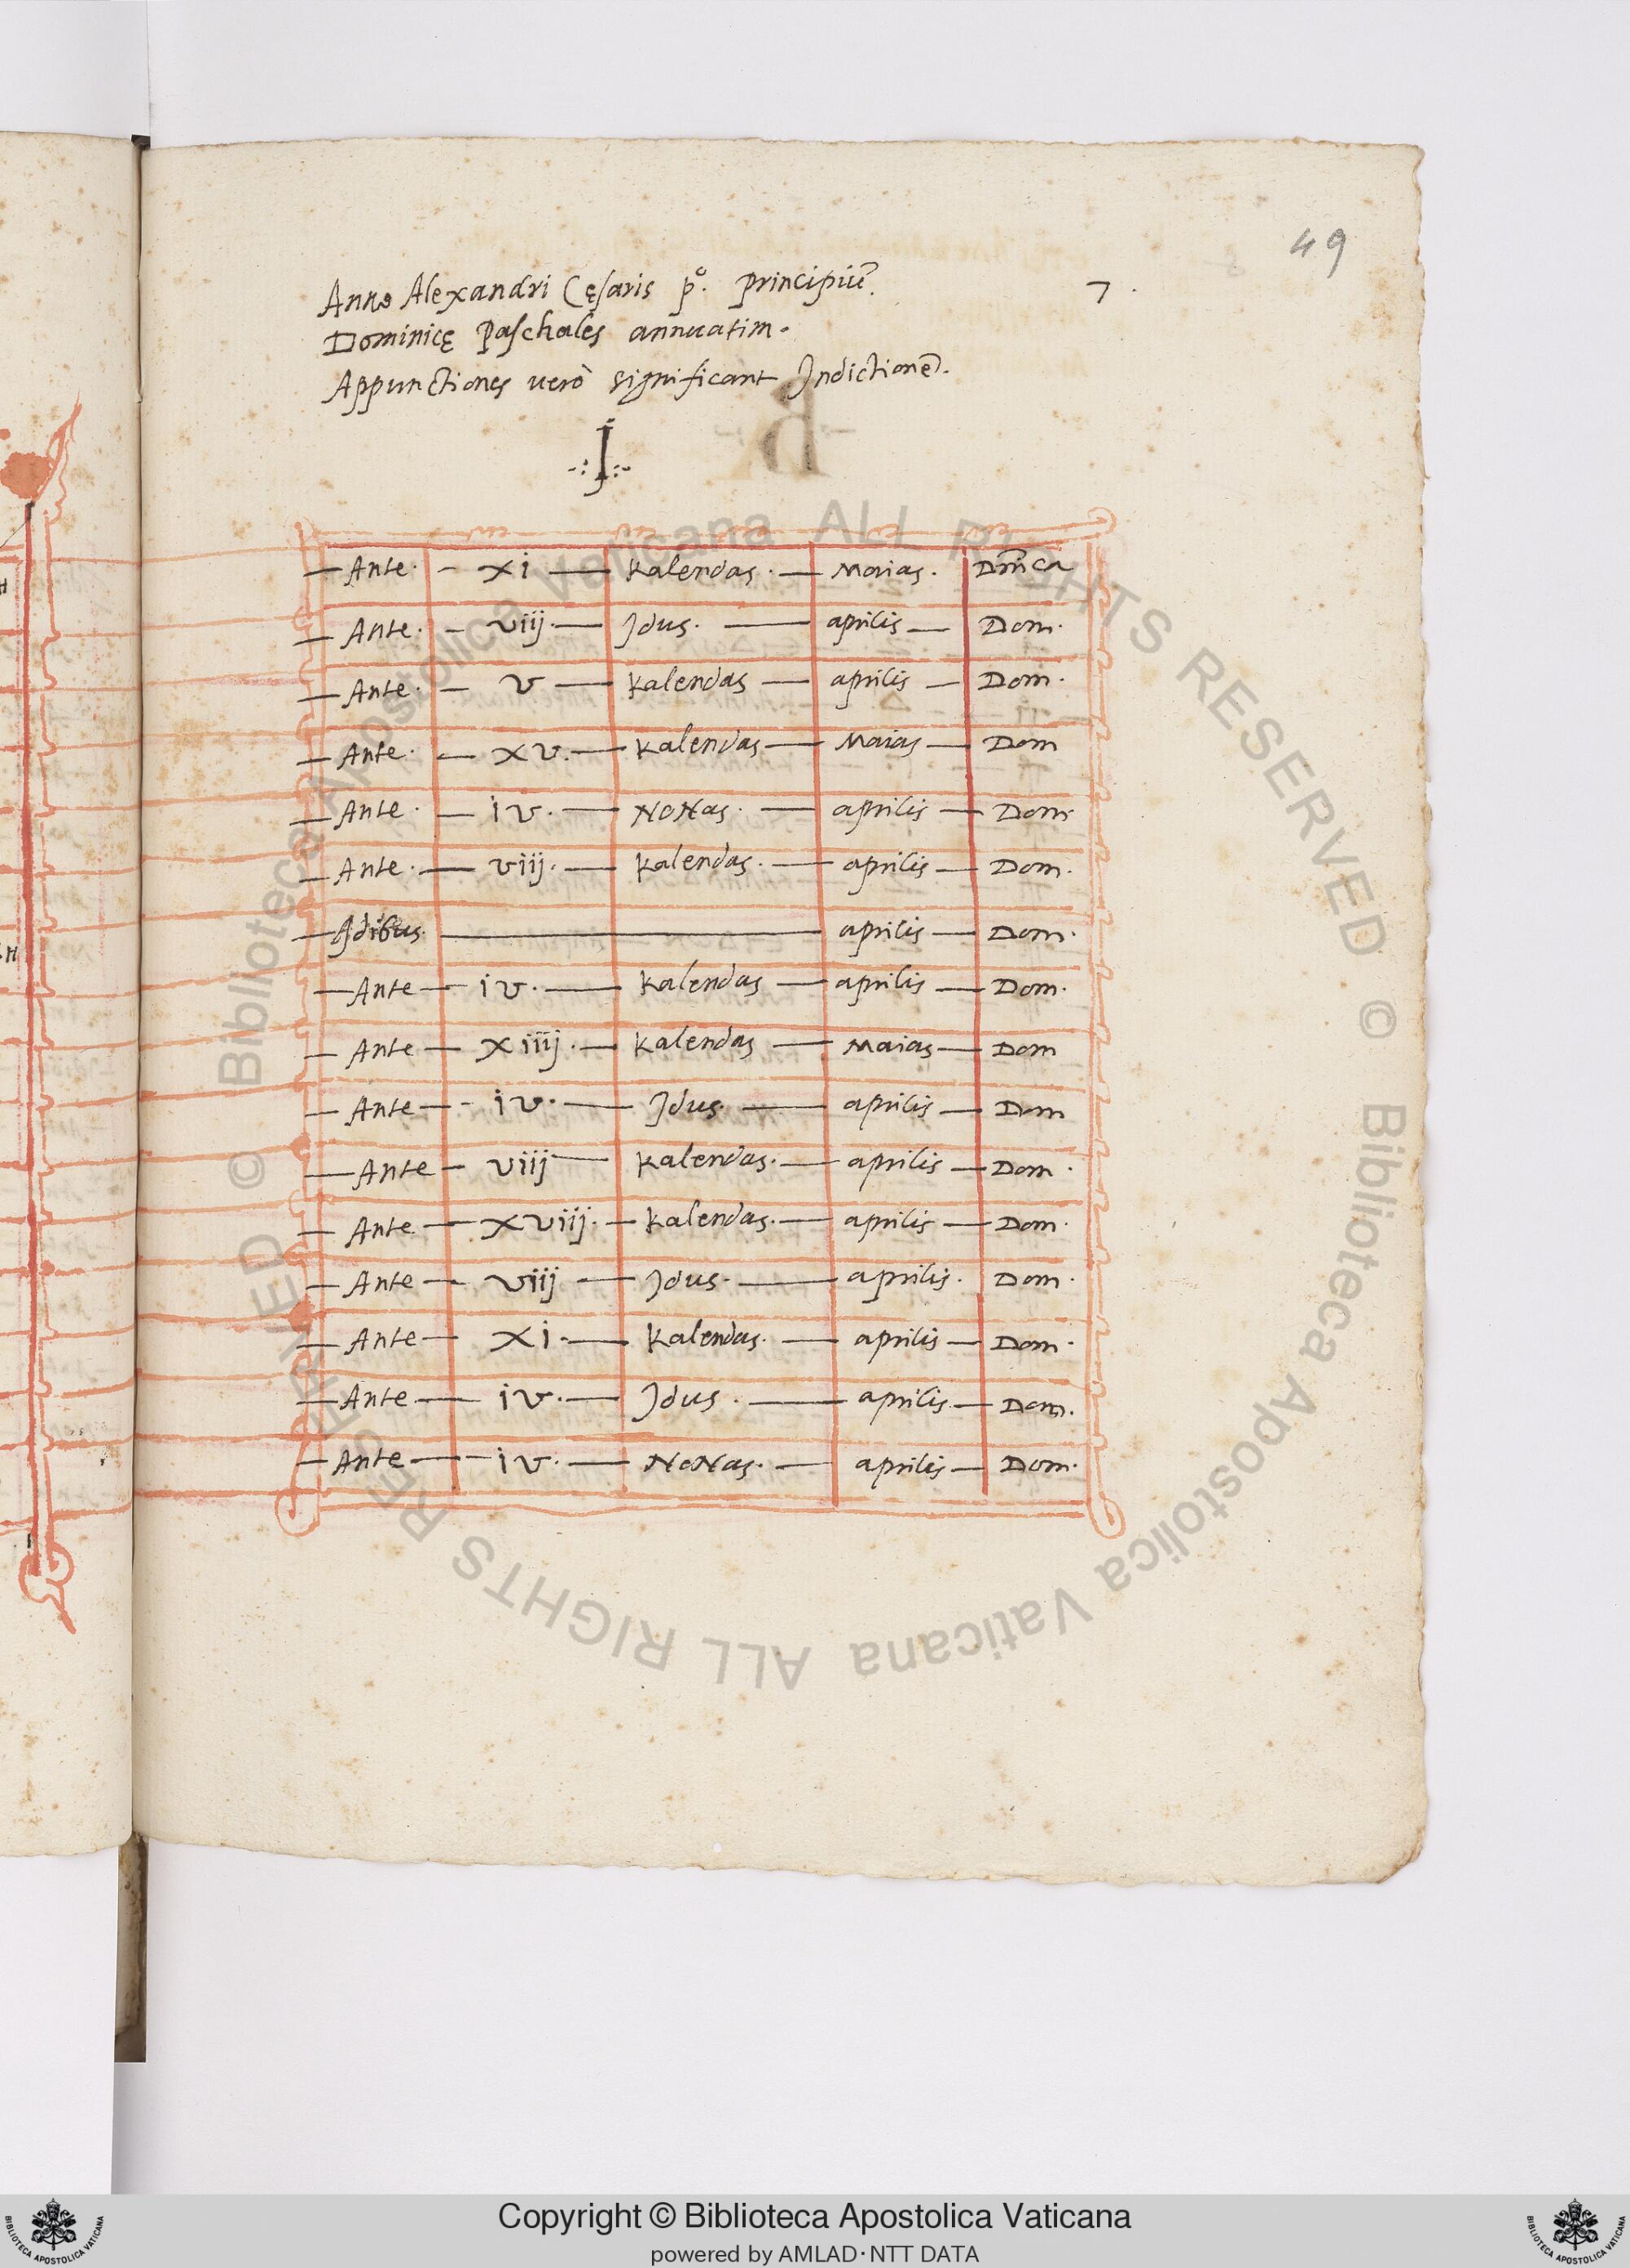 49
7.
Anno Alexandri Cęsaris pº. principiũ.
Dominicę Paschales annuatim.
Appunctiones verò significant Indictionẽ.
.:I:.
Ante. - xi — Kalendas. — Maias. Dm̃ca
— Ante. - viij. — Idus. — aprilis — Dom.
— Ante. - v — Kalendas — aprilis — Dom.
— Ante. — xv. — Kalendas — Maias — Dom
— Ante. — iv. — Nonas. — aprilis — Dom.
— Ante. — viij. — Kalendas. — aprilis — Dom.
— Idibus. — aprilis — Dom.
— Ante — iv. — Kalendas — aprilis — Dom.
— Ante — xiiij. — Kalendas — Maias — Dom
— Ante — iv. — Idus. — aprilis — Dom
— Ante — viij — Kalendas. — aprilis — Dom.
— Ante — xviij. — Kalendas. — aprilis — Dom.
— Ante — viij — Idus. — aprilis. Dom.
— Ante — xi. — Kalendas. — aprilis — Dom.
— Ante — iv. — Idus. — aprilis — Dom.
— Ante — iv. — Nonas. — aprilis — Dom.
© Biblioteca Apostolica Vaticana ALL RIGHTS RESERVED © Biblioteca Apostolica Vaticana ALL RIGHTS RESERVED
Copyright © Biblioteca Apostolica Vaticana
powered by AMLAD·NTT DATA
BIBLIOTECA APOSTOLICA VATICANA
BIBLIOTECA APOSTOLICA VATICANA